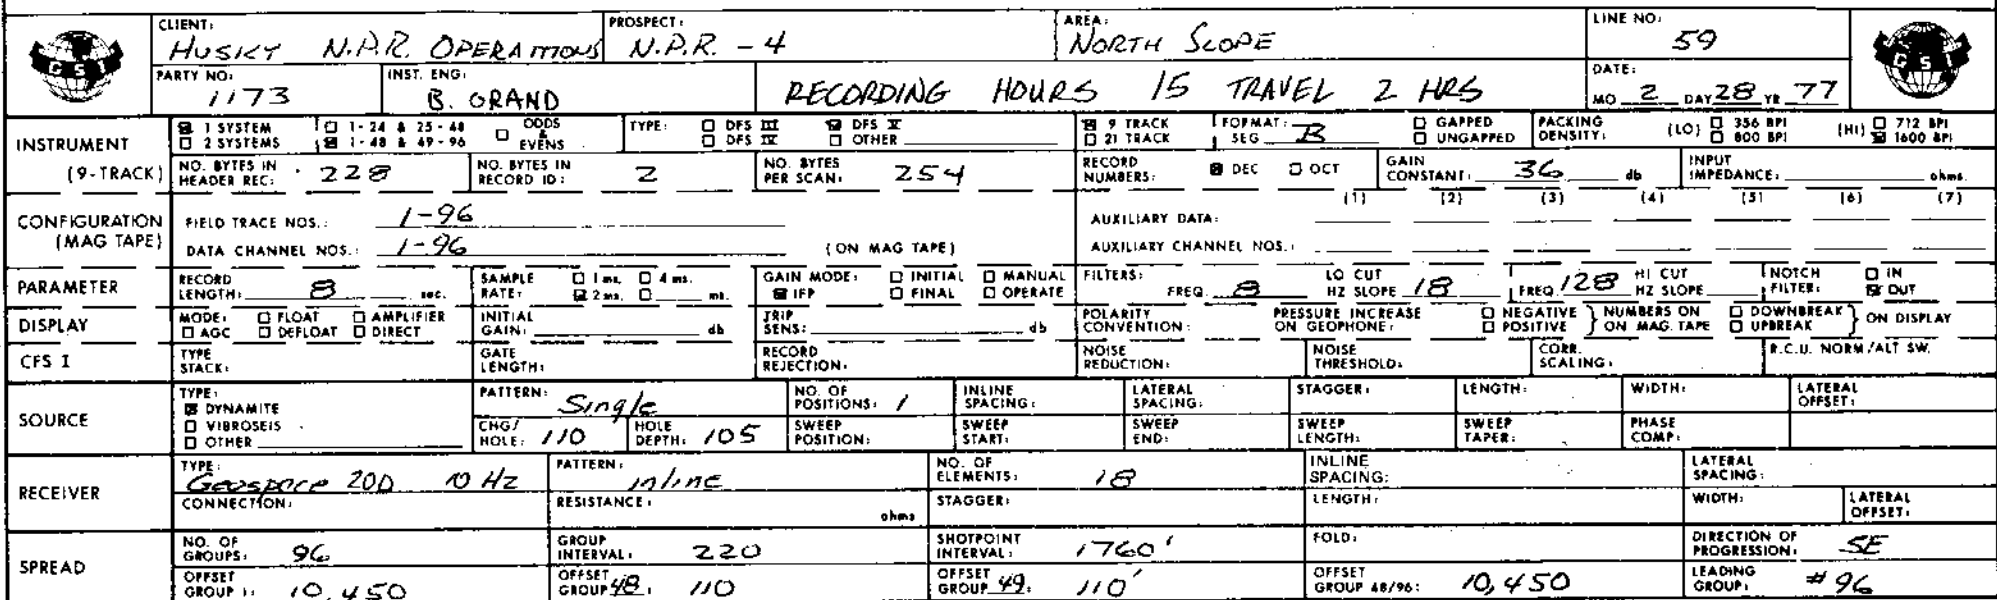 CLIENT: HUSKY N.P.R. OPERATIONS PROSPECT: N.P.R. - 4 AREA: NORTH SLOPE LINE NO: 59
GSI GSI
PARTY NO: 1173 INST. ENG: B. GRAND RECORDING HOURS 15 TRAVEL 2 HRS DATE: MO 2 DAY 28 YR 77
INSTRUMENT 1 SYSTEM 1 - 24 & 25 - 48 ODDS & EVENS TYPE: DFS III DFS V 9 TRACK FORMAT: SEG B GAPPED PACKING DENSITY: (LO) 356 BPI (HI) 712 BPI
2 SYSTEMS 1 - 48 & 49 - 96 DFS IV OTHER 21 TRACK UNGAPPED 800 BPI 1600 BPI
(9-TRACK) NO. BYTES IN HEADER REC: 228 NO. BYTES IN RECORD ID: 2 NO. BYTES PER SCAN: 254 RECORD NUMBERS: DEC OCT GAIN CONSTANT: 36 db INPUT IMPEDANCE: ohms.
(1) (2) (3) (4) (5) (6) (7)
CONFIGURATION (MAG TAPE) FIELD TRACE NOS.: 1-96 AUXILIARY DATA:
DATA CHANNEL NOS.: 1-96 (ON MAG TAPE) AUXILIARY CHANNEL NOS.:
PARAMETER RECORD LENGTH: 8 sec. SAMPLE RATE: 1 ms. 4 ms. 2 ms. ms. GAIN MODE: INITIAL MANUAL IFP FINAL OPERATE FILTERS: FREQ 8 LO CUT HZ SLOPE 18 FREQ 128 HI CUT HZ SLOPE NOTCH FILTER: IN OUT
DISPLAY MODE: FLOAT AMPLIFIER AGC DEFLOAT DIRECT INITIAL GAIN: db TRIP SENS: db POLARITY CONVENTION: PRESSURE INCREASE ON GEOPHONE: NEGATIVE POSITIVE NUMBERS ON ON MAG. TAPE DOWNBREAK UPBREAK ON DISPLAY
CFS I TYPE STACK: GATE LENGTH: RECORD REJECTION: NOISE REDUCTION: NOISE THRESHOLD: CORR. SCALING: R.C.U. NORM/ALT SW.
SOURCE TYPE: DYNAMITE VIBROSEIS OTHER PATTERN: Single NO. OF POSITIONS: 1 INLINE SPACING: LATERAL SPACING: STAGGER: LENGTH: WIDTH: LATERAL OFFSET:
CHG/ HOLE: 110 HOLE DEPTH: 105 SWEEP POSITION: SWEEP START: SWEEP END: SWEEP LENGTH: SWEEP TAPER: PHASE COMP:
RECEIVER TYPE: Geospace 20D 10 HZ PATTERN: inline NO. OF ELEMENTS: 18 INLINE SPACING: LATERAL SPACING:
CONNECTION: RESISTANCE: ohms STAGGER: LENGTH: WIDTH: LATERAL OFFSET:
SPREAD NO. OF GROUPS: 96 GROUP INTERVAL: 220 SHOTPOINT INTERVAL: 1760' FOLD: DIRECTION OF PROGRESSION: SE
OFFSET GROUP 1: 10,450 OFFSET GROUP 48: 110 OFFSET GROUP 49: 110' OFFSET GROUP 48/96: 10,450 LEADING GROUP: #96